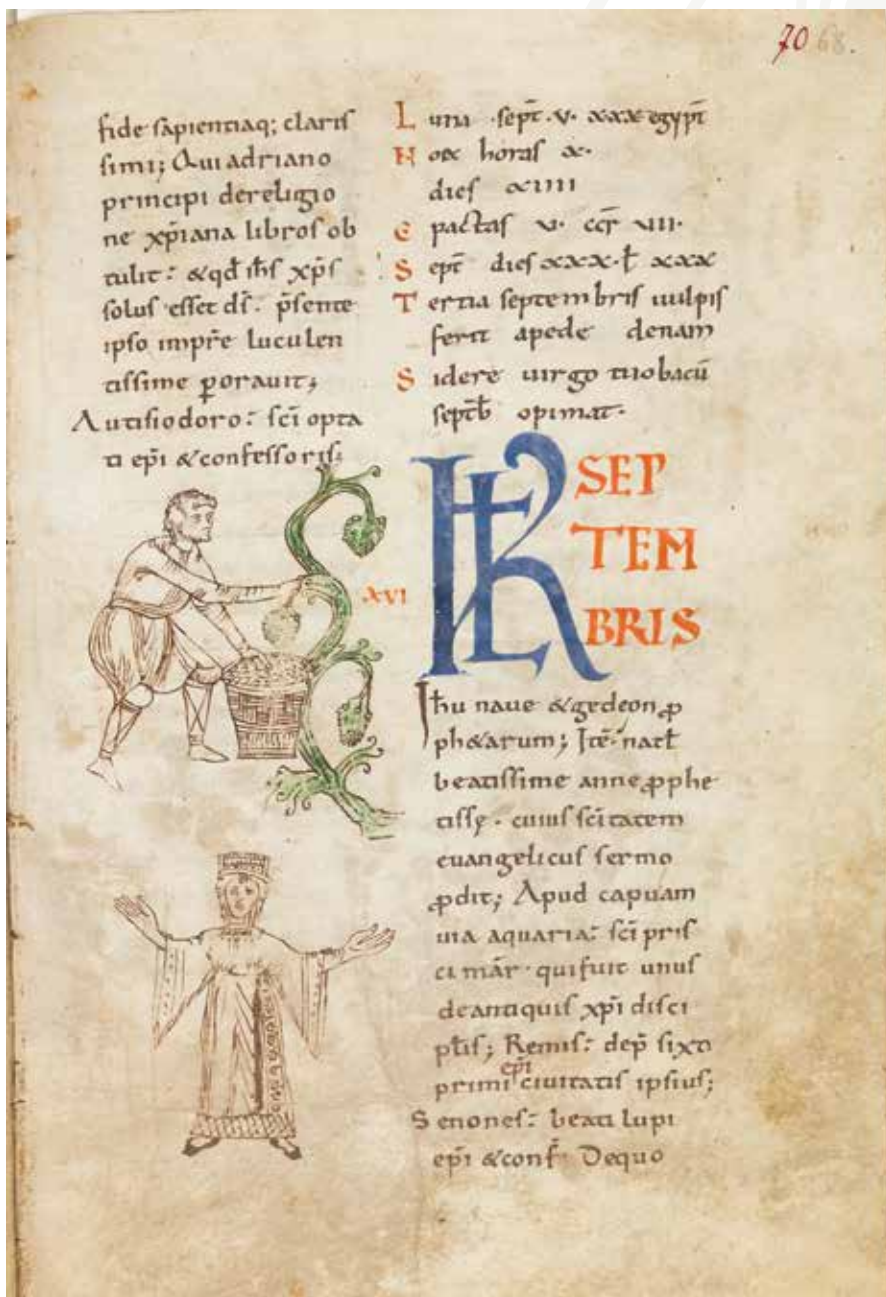 70 68.
fide sapientiaq; claris
simi; Qui adriano
principi de religio
ne xp̄iana libros ob
tulit: & qđ ih̄s xp̄s
solus esset dī. p̄sente
ipso impr̄e luculen
tissime ꝑorauit;
Autisiodoro: sc̄i opta
ti ep̄i & confessoris;
L uni sept̄ v. xxx egypt̄
N ox horas x.
dies xiiii
E pactas v. cc̄r viii.
S ept̄ dies xxx. ł xxx
T ertia septembris uulpis
ferit a pede denam
S idere uirgo tuo bacū
septēb opimat.
KL SEP
TEM
BRIS
xvi
Jh̄u naue & gedeon ꝓ
ph&arum; Itē nat̄
beatissime anne ꝓphe
tissę. cuius sc̄itatem
euangelicus sermo
ꝓdit; Apud capuam
uia aquaria: sc̄i pris
ci mār. qui fuit unus
de antiquis xp̄i disci
pl̄is; Remis: dep̄ sixti
primi ep̄i ciuitatis ipsius;
Senones: beati lupi
ep̄i & conf̄. De quo